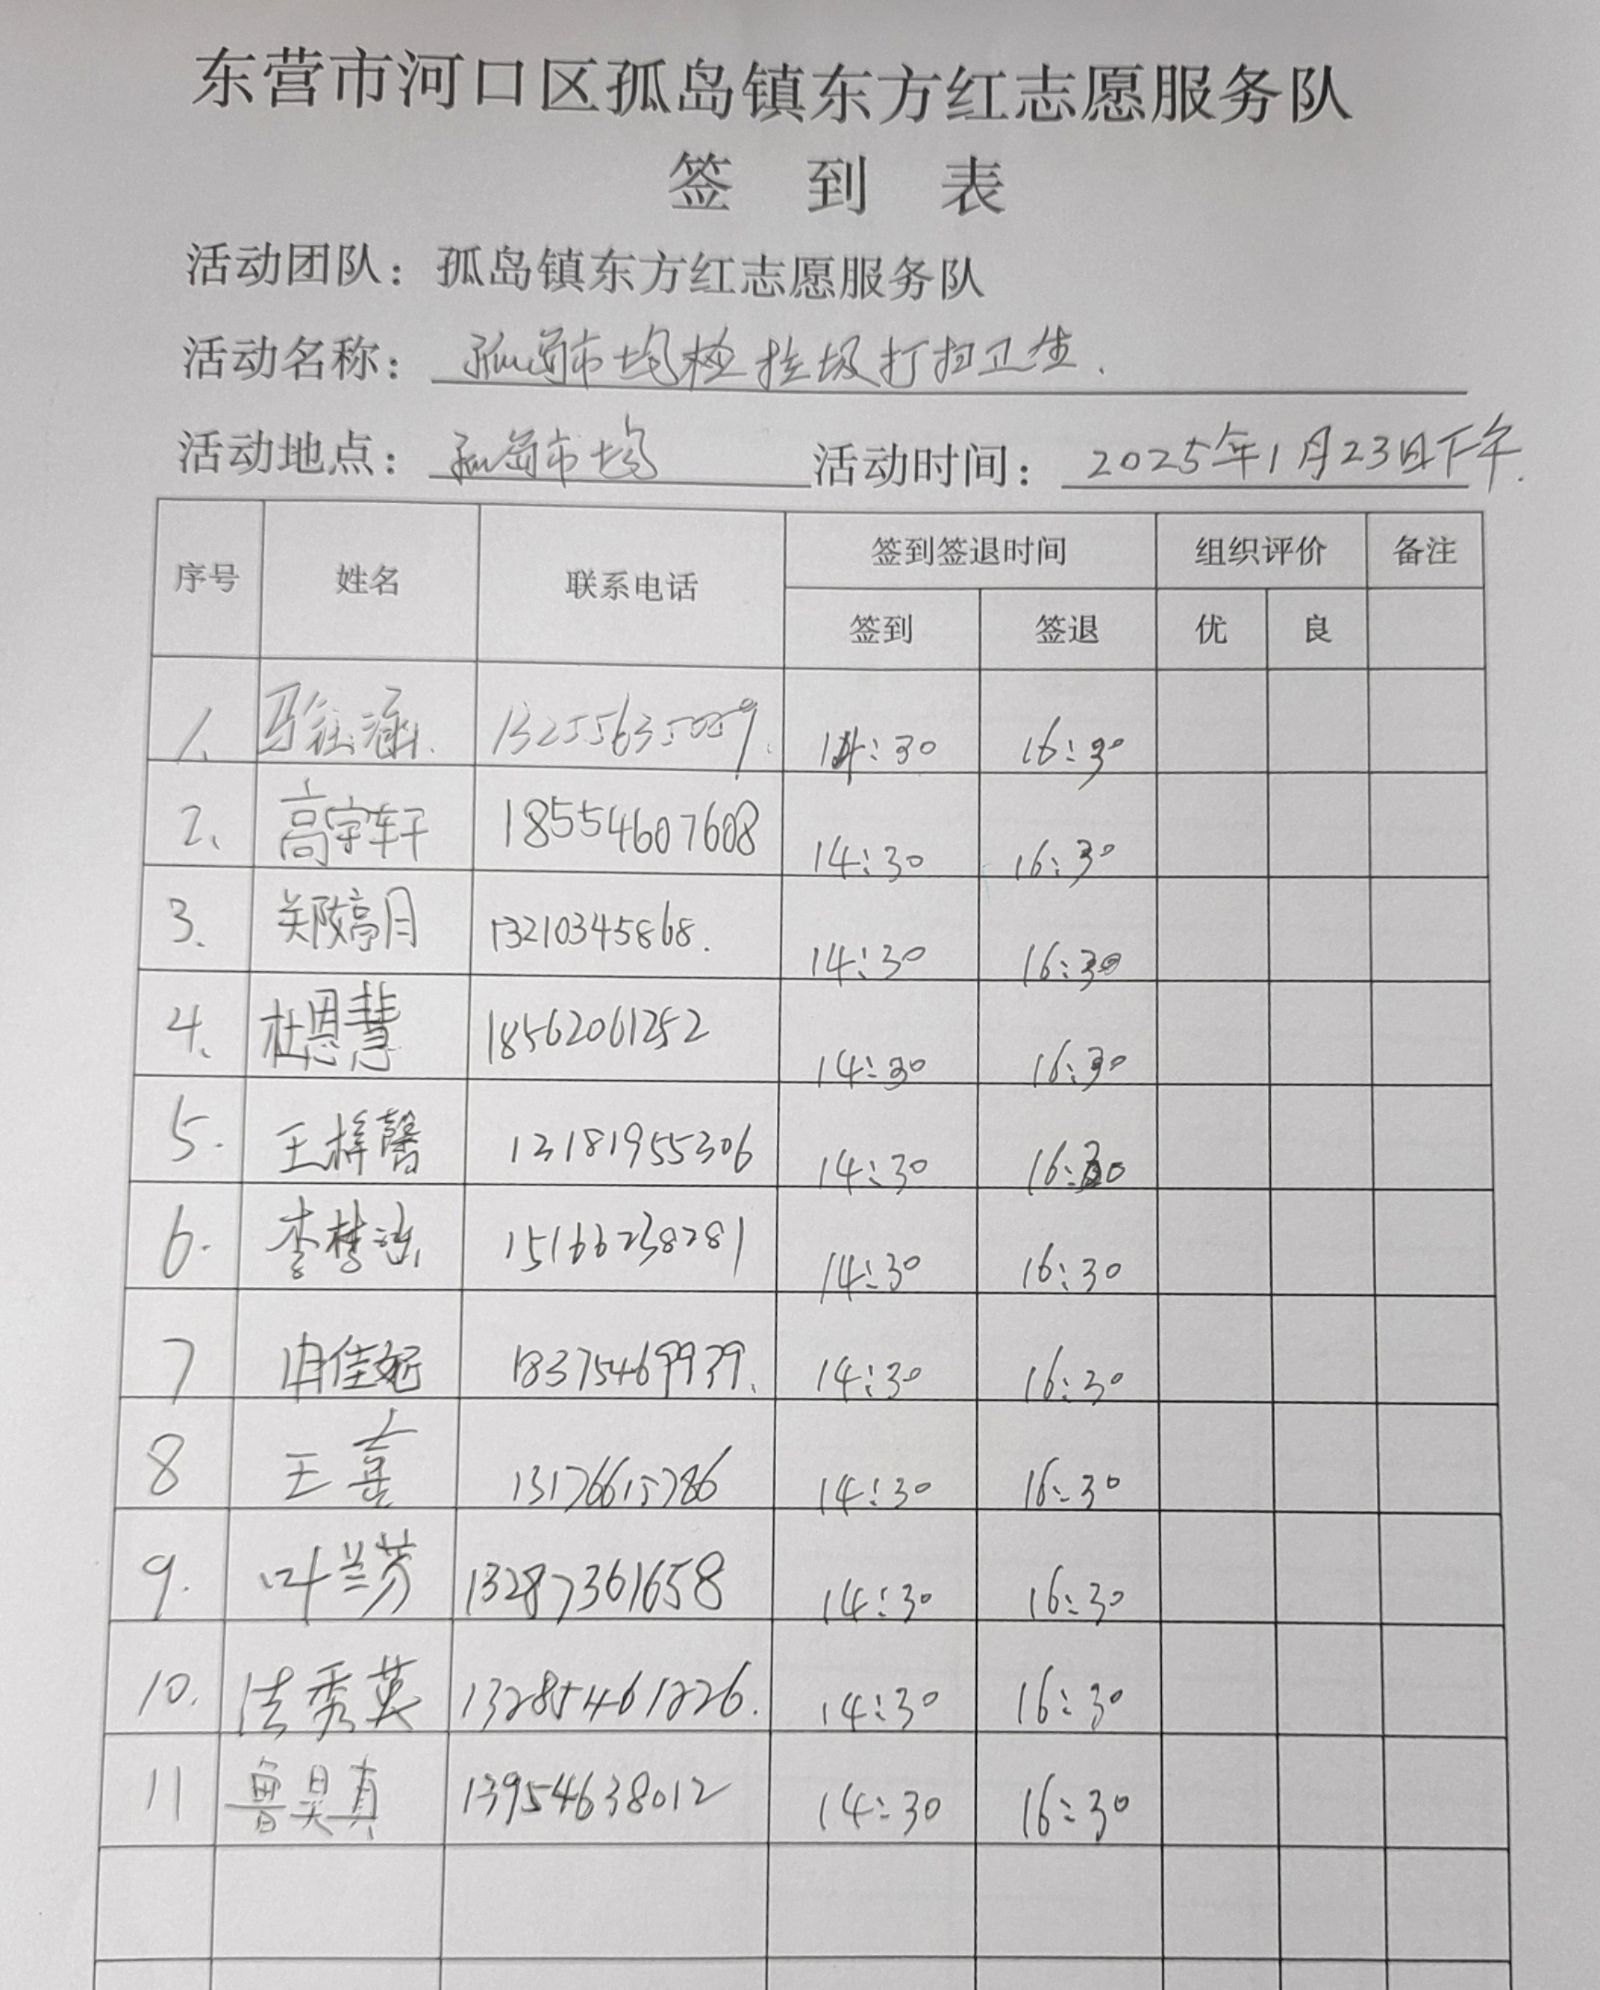 东营市河口区孤岛镇东方红志愿服务队
签 到 表
活动团队：孤岛镇东方红志愿服务队
活动名称：孤岛市场捡垃圾打扫卫生.
活动地点：孤岛市场 活动时间：2025年1月23日下午.
序号 姓名 联系电话 签到签退时间 组织评价 备注
签到 签退 优 良
1、马钰涵. 14:30 16:30
2、高宇轩 18554607608 14:30 16:30
3、郑婷月 13210345868. 14:30 16:30
4、杜恩慧 18562061252 14:30 16:30
5. 王梓馨 13181955306 14:30 16:30
6. 李梦 15166238281 14:30 16:30
7 佳妮 18375469939. 14:30 16:30
8 王 13176615786 14:30 16:30
9. 叶兰芳 13287361658 14:30 16:30
10. 秀英 13285461226. 14:30 16:30
11 鲁昊真 13954638012 14:30 16:30